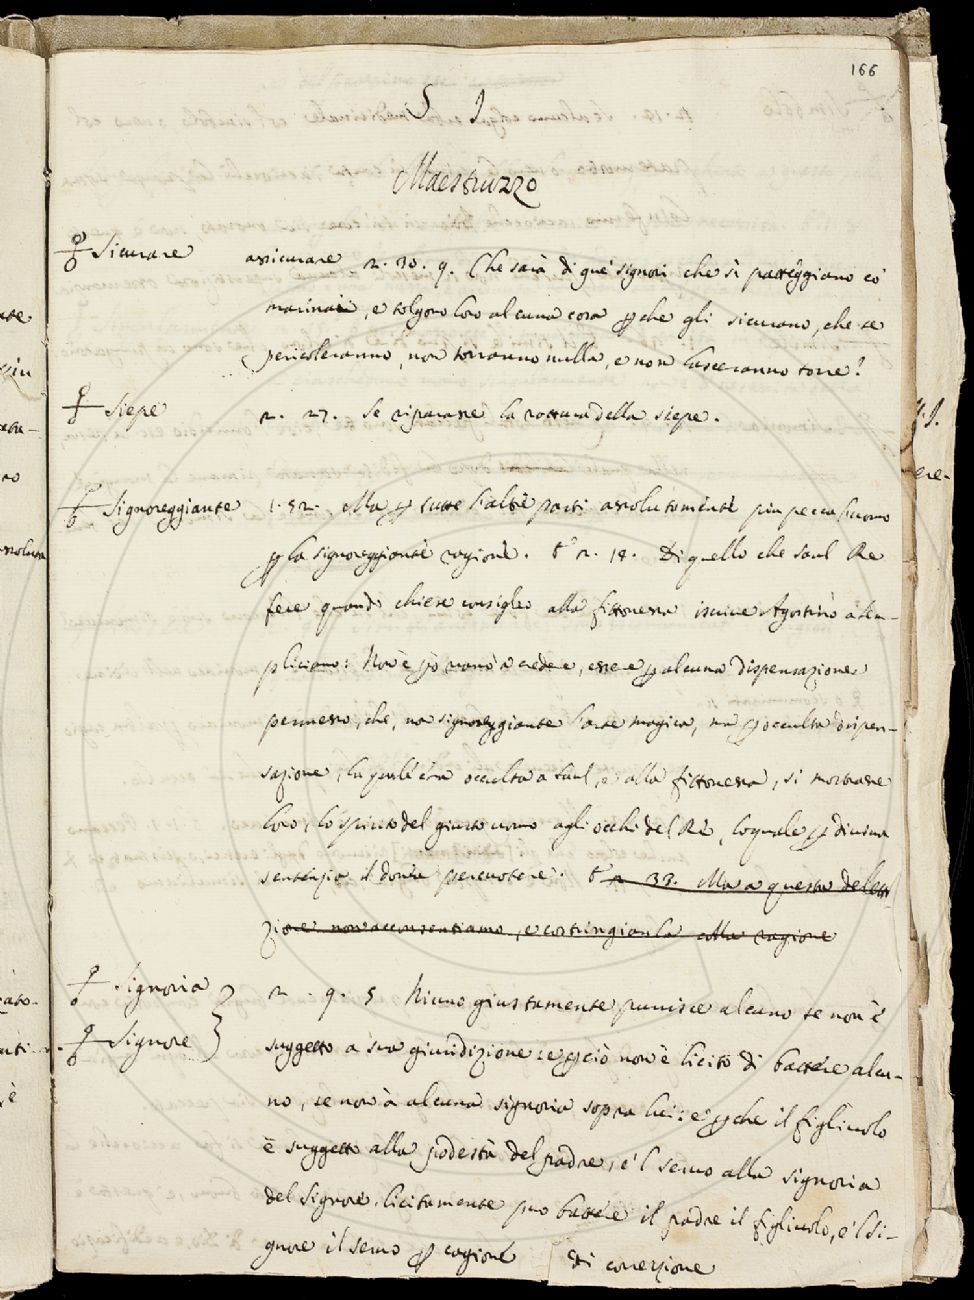 166
S I
Maestruzzo
Sicurare assicurare 2. 30. 9. Che sarà di que' signori che si patteggiano co'
marinai, e tolgono loro alcuna cosa perche gli sicurano, che se
pericoleranno, non torranno nulla, e non lasceranno torre?
Siepe 2. 27. Se riparasse la rottura della siepe.
Signoreggiante 1. 52. Ma per tutte l'altre parti assolutamente piu pecca l'uomo
per la signoreggiante ragione. E 2. 14. Di quello che Saul Re
fece quando chiese consiglio alla fittonessa iscrive Agostino a Sem-
pliciano: Non è
a credere, essere per alcuna dispensazione
permesso, che, non signoreggiante l'arte magica, ma per occulta dispen-
sazione, la quale era occulta a Saul, e alla fittonessa, si mostrasse
loro, lo spirito del giusto uomo agli occhi del Re, lo quale per divina
sentenzia il dovea percuotere. E 2. 33. Ma a questa deletta-
zione non acconsentiamo, e costringianla colla ragione
Signoria
Signore
2. 9. 5 Niuno giustamente punisce alcuno se non è
suggetto a sua giuridizione: e perciò non è licito di battere alcu-
no, se non à alcuna signoria sopra lui: e perche il figliuolo
è suggetto alla podestà del padre, e 'l servo alla signoria
del signore, licitamente puo battere il padre il figliuolo, e 'l si-
gnore il servo per cagione di correzione